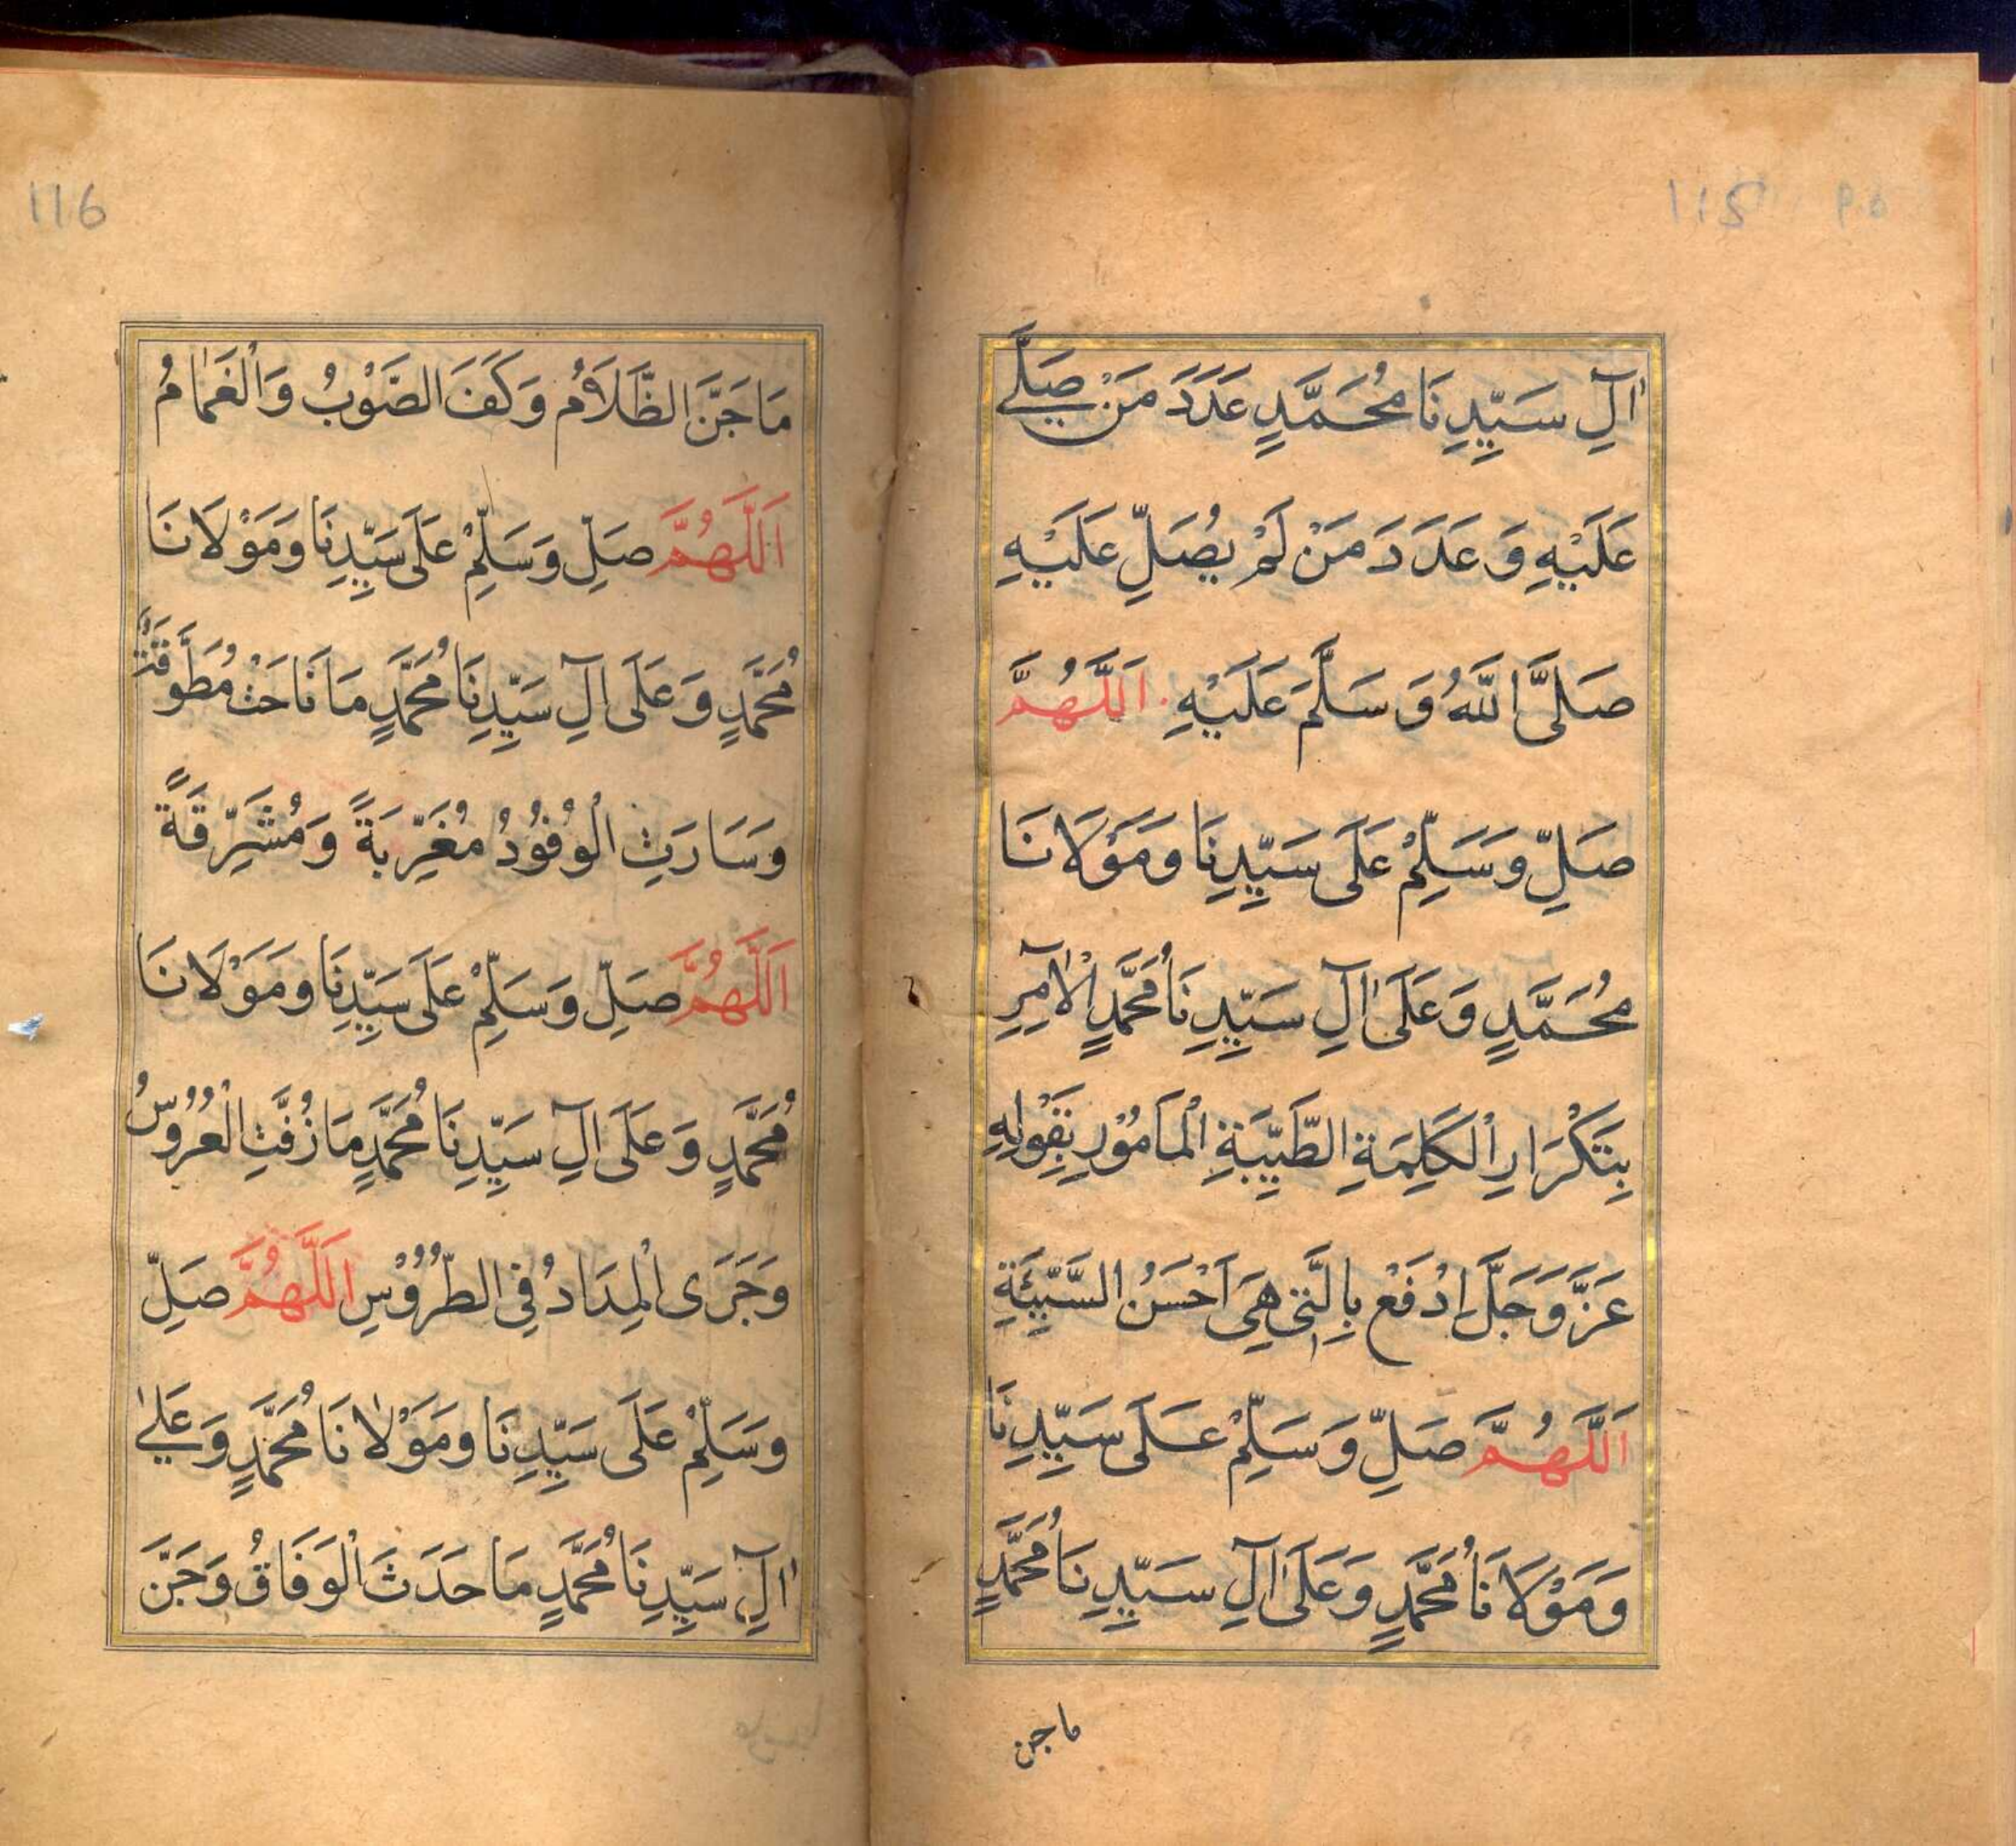 115
اٰلِ سَيِّدِنَا مُحَمَّدٍ عَدَدَ مَنْ صَلّٰے
عَلَيْهِ وَعَدَدَ مَنْ لَمْ يُصَلِّ عَلَيْهِ
صَلَّى اللّٰهُ وَسَلَّمَ عَلَيْهِ اَللّٰهُمَّ
صَلِّ وَسَلِّمْ عَلَى سَيِّدِنَا وَمَوْلَانَا
مُحَمَّدٍ وَعَلَى اٰلِ سَيِّدِنَا مُحَمَّدٍ الْاٰمِرِ
بِتَكْرَارِ الْكَلِمَةِ الطَّيِّبَةِ الْمَاْمُوْرِ بِقَوْلِهِ
عَزَّ وَجَلَّ اِدْفَعْ بِالَّتِى هِىَ اَحْسَنُ السَّيِّئَةِ
اَللّٰهُمَّ صَلِّ وَسَلِّمْ عَلَى سَيِّدِنَا
وَمَوْلَانَا مُحَمَّدٍ وَعَلَى اٰلِ سَيِّدِنَا مُحَمَّدٍ
ما جن
116
مَا جَنَّ الظَّلَامُ وَكَفَ الصَّوْبُ وَالْغَمَامُ
اَللّٰهُمَّ صَلِّ وَسَلِّمْ عَلَى سَيِّدِنَا وَمَوْلَانَا
مُحَمَّدٍ وَعَلَى اٰلِ سَيِّدِنَا مُحَمَّدٍ مَا نَاحَتْ مُطَوَّقَةٌ
وَسَارَتِ الْوُفُوْدُ مُغَرِّبَةً وَمُشَرِّقَةً
اَللّٰهُمَّ صَلِّ وَسَلِّمْ عَلَى سَيِّدِنَا وَمَوْلَانَا
مُحَمَّدٍ وَعَلَى اٰلِ سَيِّدِنَا مُحَمَّدٍ مَا زُفَّتِ الْعُرُوْسُ
وَجَرَى الْمِدَادُ فِى الطُّرُوْسِ اَللّٰهُمَّ صَلِّ
وَسَلِّمْ عَلَى سَيِّدِنَا وَمَوْلٰانَا مُحَمَّدٍ وَعَلٰے
اٰلِ سَيِّدِنَا مُحَمَّدٍ مَا حَدَثَ الْوَفَاقُ وَجَنَّ